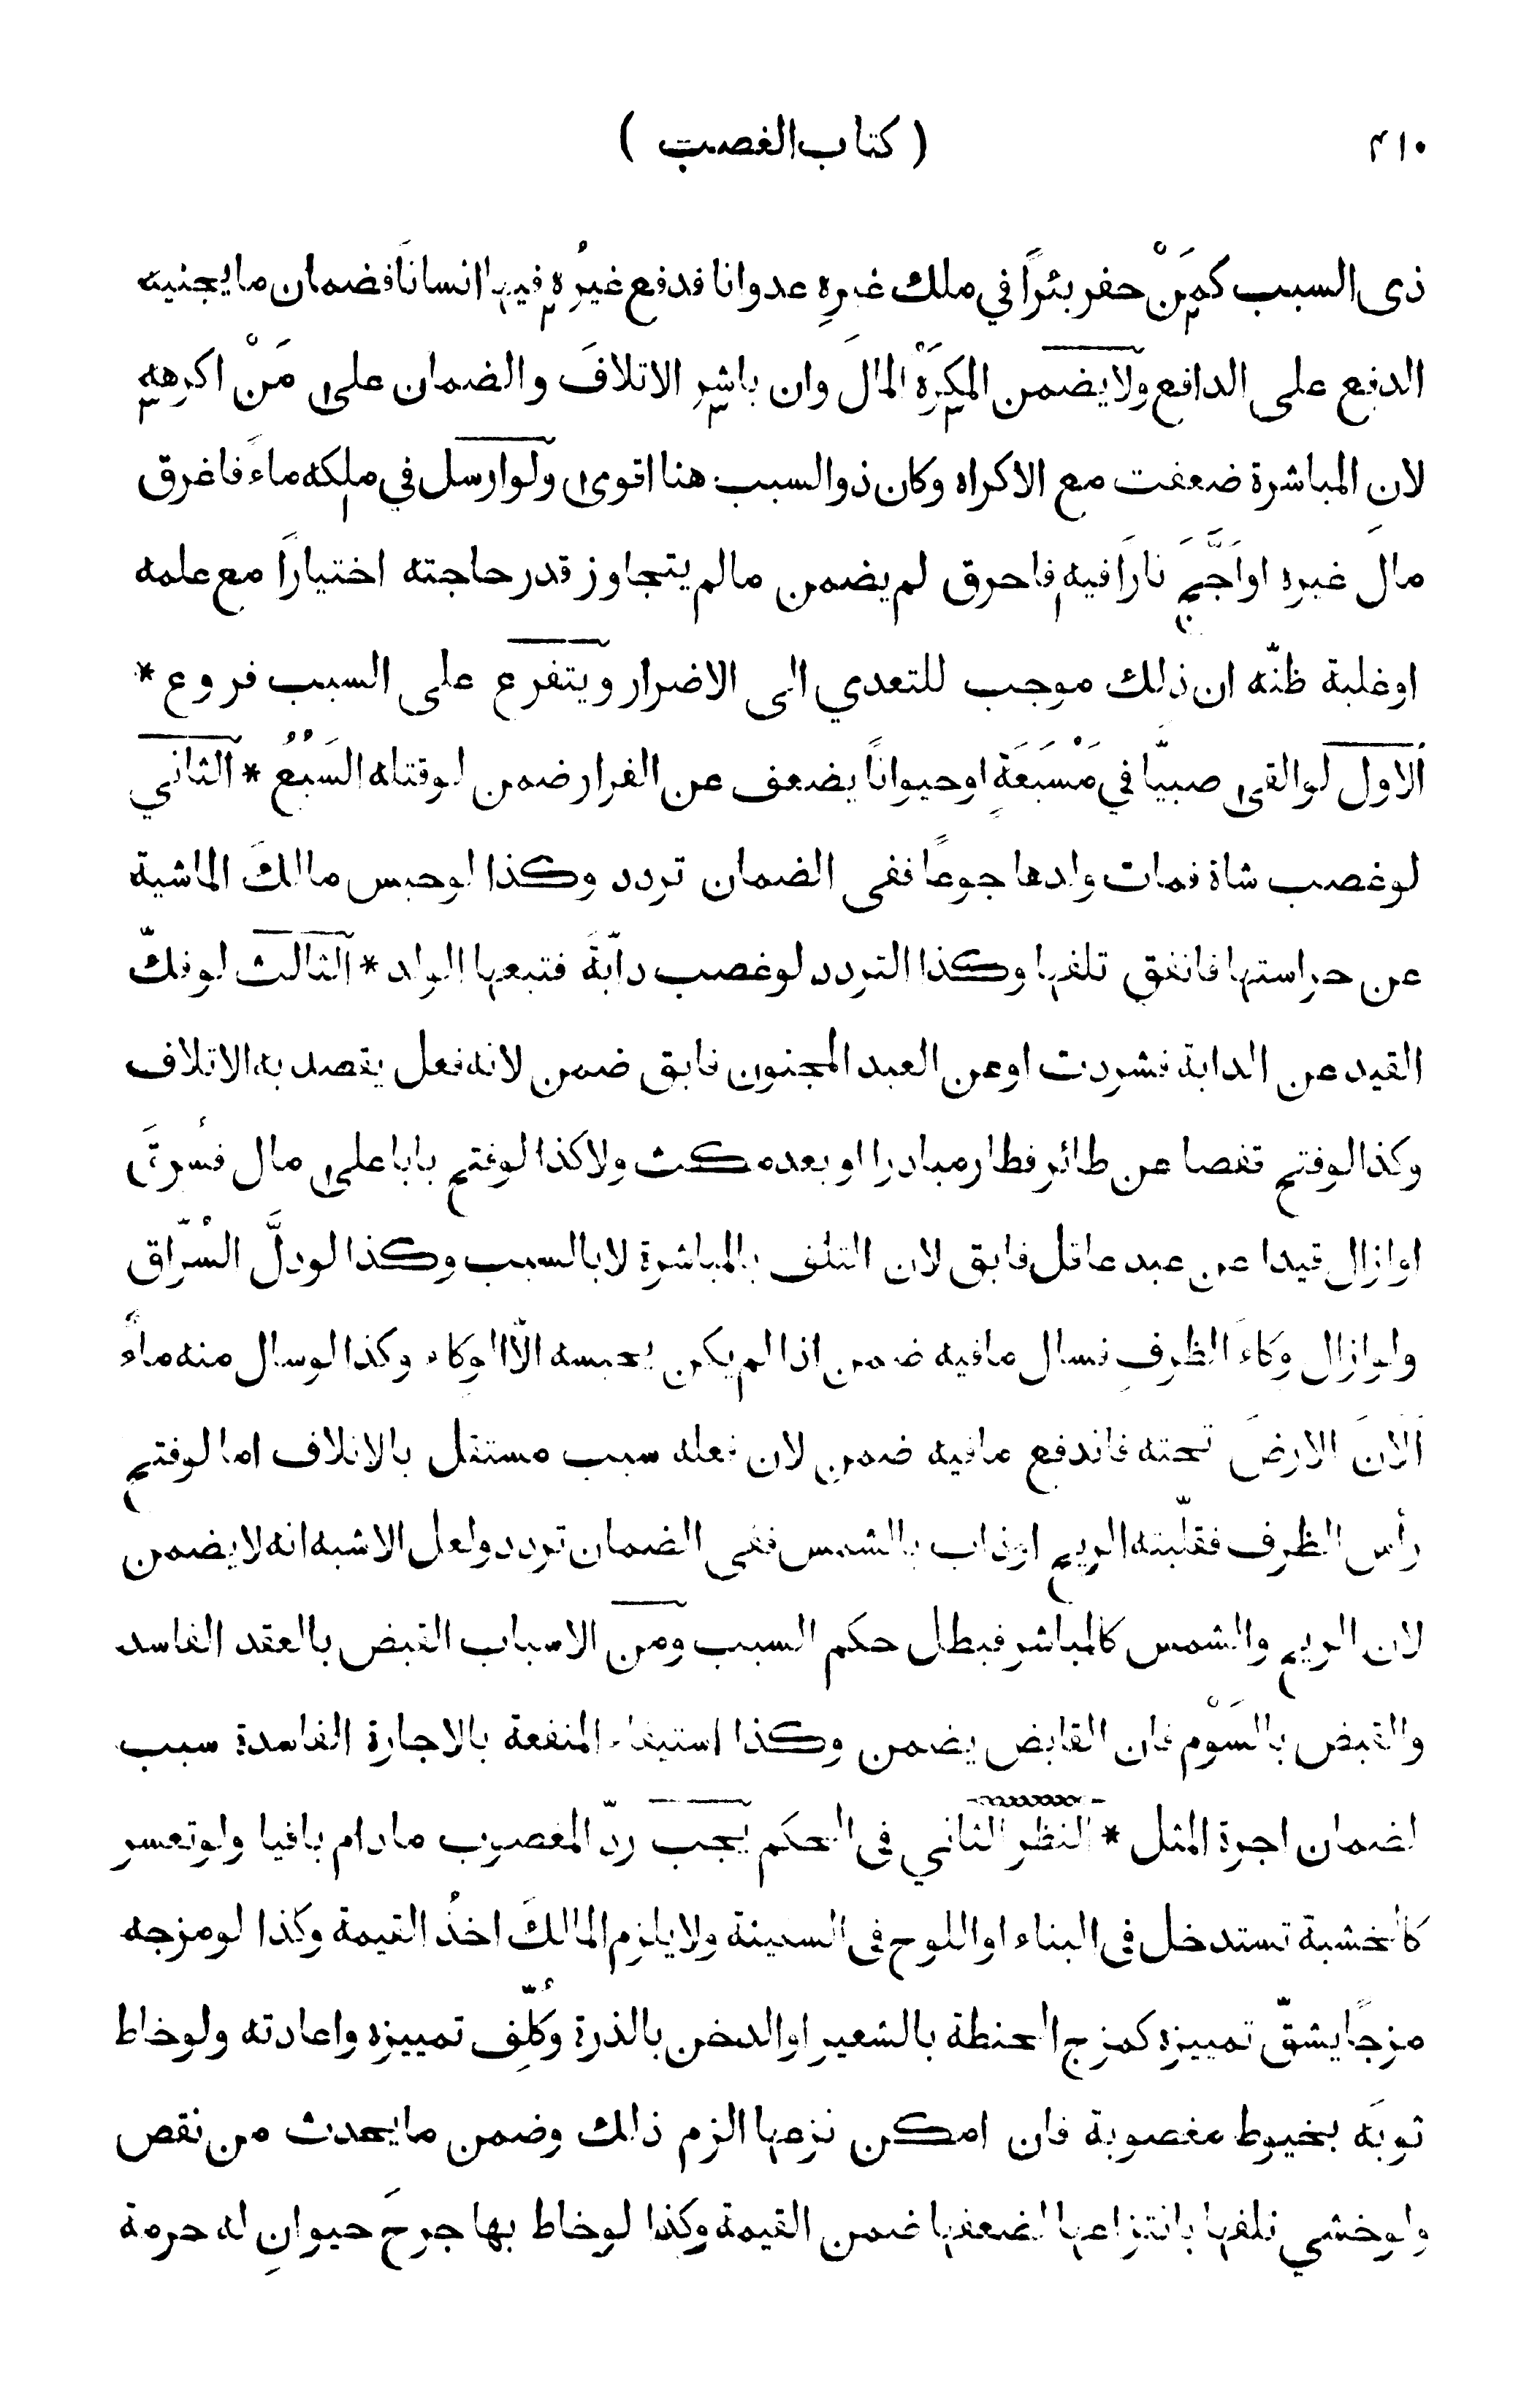 ٤١٠ ( كتاب الغصب )
ذى السبب كمَنْ حفر بئراً في ملك غيرِهِ عدوانا فدفع غيرُه فيها انساناً فضمان ما يجنيه
الدفع على الدافع ولا يضمن المكرَهُ المالَ وان باشر الاتلافَ والضمان على مَنْ اكرهه
لان المباشرة ضعفت مع الاكراه وكان ذو السبب هنا اقوى ولو ارسل في ملكه ماءً فاغرق
مالَ غيره او اَجَّجَ ناراً فيه فاحرق لم يضمن مالم يتجاوز قدر حاجته اختياراً مع علمه
او غلبة ظنّه ان ذلك موجب للتعدي الى الاضرار ويتفرع على السبب فروع *
الاول لو القى صبيّاً في مَسْبَعَةٍ او حيواناً يضعف عن الفرار ضمن لو قتله السَبُعُ * الثاني
لو غصب شاة فمات ولدها جوعاً ففى الضمان تردد وكذا لو حبس مالكَ الماشية
عن حراستها فاتفق تلفها وكذا التردد لو غصب دابّةً فتبعها الولد * الثالث لو فكّ
القيد عن الدابة فشردت او عن العبد المجنون فابق ضمن لانه فعل يقصد به الاتلاف
وكذا لو فتح قفصا عن طائر فطار مبادرا او بعد مكث ولا كذا لو فتح بابا على مال فسُرقَ
او ازال قيدا عن عبد عاقل فابق لان التلف بالمباشرة لا بالسبب وكذا لو دلَّ السُرّاق
ولو ازال وكاءَ الظرفِ فسال مافيه ضمن اذا لم يكن يحبسه الّا الوكاء وكذا لو سال منه ماءٌ
اَلَانَ الارضَ تحته فاندفع مافيه ضمن لان فعله سبب مستقل بالاتلاف اما لو فتح
رأس الظرف فقلّبته الريح او ذاب بالشمس ففى الضمان تردد ولعل الاشبه انه لا يضمن
لان الريح والشمس كالمباشر فبطل حكم السبب ومن الاسباب القبض بالعقد الفاسد
والقبض بالسَوْم فان القابض يضمن وكذا استيفاء المنفعة بالاجارة الفاسدة سبب
لضمان اجرة المثل * النظر الثاني فى الحكم يجب ردّ المغصوب مادام باقيا ولو تعسر
كالخشبة تستدخل فى البناء او اللوح فى السفينة ولا يلزم المالكَ اخذُ القيمة وكذا لو مزجه
مزجاً يشقّ تمييزه كمزج الحنطة بالشعير او الدخن بالذرة وكُلّف تمييزه واعادته ولو خاط
ثوبَه بخيوط مغصوبة فان امكن نزعها الزم ذلك وضمن ما يحدث من نقص
ولو خشي تلفها بانتزاعها لضعفها ضمن القيمة وكذا لو خاط بها جرحَ حيوانٍ له حرمة